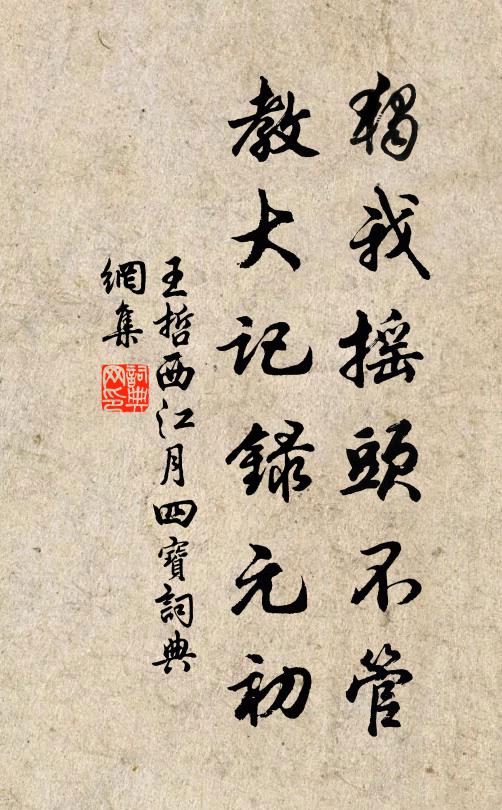 獨我搖頭不管
教大記錄元初
王哲西江月四寶詞典
網集
詞典
网印